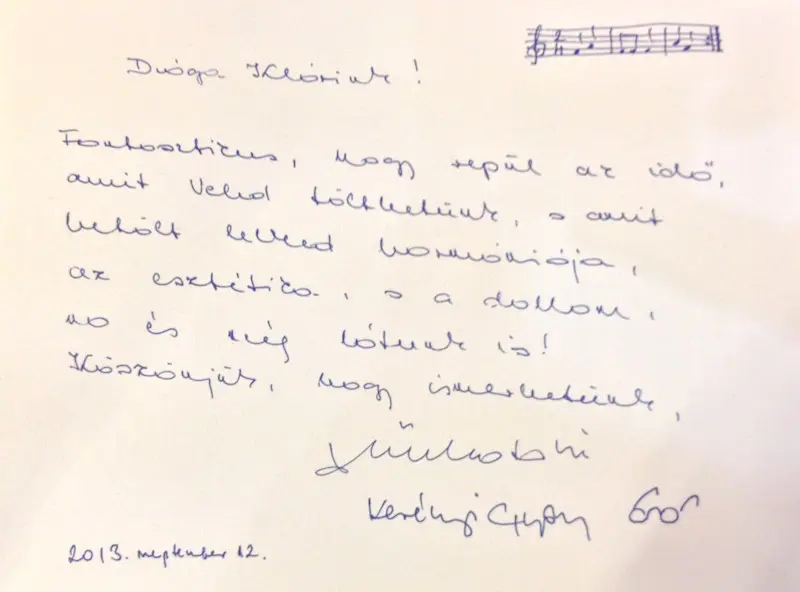 Drága Klárink!
Fantasztikus, hogy repül az idő,
amit Veled tölthetünk, s amit
betölt lelked harmóniája,
az esztética, s a dallam,
no és még látunk is!
Köszönjük, hogy ismerhetünk,
Kerényi György
2013. szeptember 12.